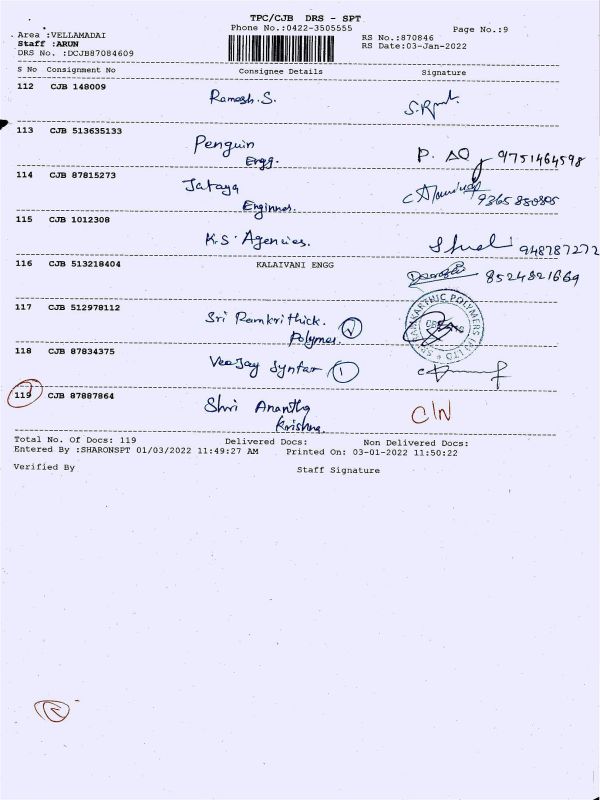 TPC/CJB DRS - SPT
Phone No.:0422-3505555
Page No.:9
Area :VELLAMADAI
RS No.:870846
Staff :ARUN
RS Date:03-Jan-2022
DRS No. :DCJB87084609
S No Consignment No Consignee Details Signature
112 CJB 148009 Ramesh.S.
113 CJB 513635133 Penguin
Engg. 9751464598
114 CJB 87815273 Jataya
Enginnes. 9365850805
115 CJB 1012308 K.S. Agencies. 948787272
116 CJB 513218404 KALAIVANI ENGG 8524821669
117 CJB 512978112 Sri Ramkrithick.
Polymer.
118 CJB 87834375 Veejay Syntax 1
119 CJB 87887864 Shri Anantha
Krishna. C/N
Total No. Of Docs: 119 Delivered Docs: Non Delivered Docs:
Entered By :SHARONSPT 01/03/2022 11:49:27 AM Printed On: 03-01-2022 11:50:22
Verified By Staff Signature
R